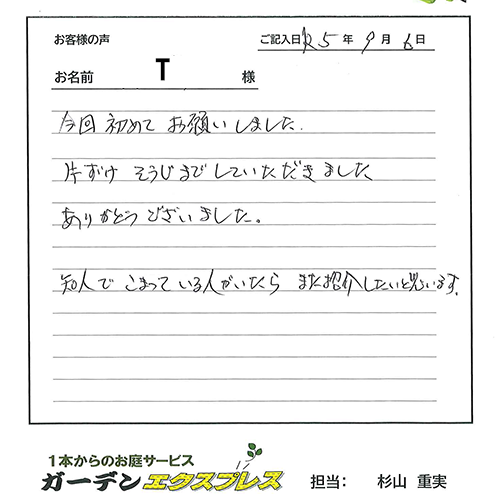 お客様の声 ご記入日 R5 年 9 月 6 日
お名前 T 様
今回 初めて お願いしました.
片ずけ そうじまでしていただきました
ありがとうございました。
知人で こまっている人がいたら また紹介したいと思います.
1本からのお庭サービス
ガーデンエクスプレス 担当: 杉山 重実